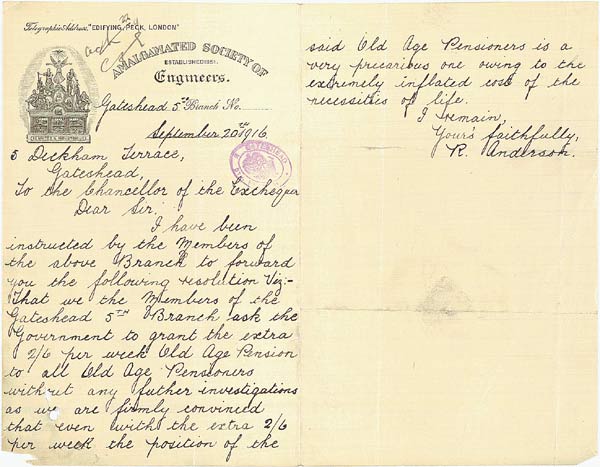 Telegraphic Address, "EDIFYING, PECK, LONDON"
AMALGAMATED SOCIETY OF
ESTABLISHED 1851.
Engineers.
Gateshead 5th Branch No.
September 20th 1916.
5 Deckham Terrace,
Gateshead,
To the Chancellor of the Exchequer
Dear Sir,
I have been
instructed by the Members of
the above Branch to forward
you the following resolution Viz:-
That we the Members of the
Gateshead 5TH Branch ask the
Government to grant the extra
2/6 per week Old Age Pension
to all Old Age Pensioners
without any futher investigations
as we are firmly convinced
that even with the extra 2/6
per week the position of the
said Old Age Pensioners is a
very precarious one owing to the
extremely inflated cost of the
necessities of life.
I remain,
Yours faithfully,
R. Anderson.
GATESHEAD